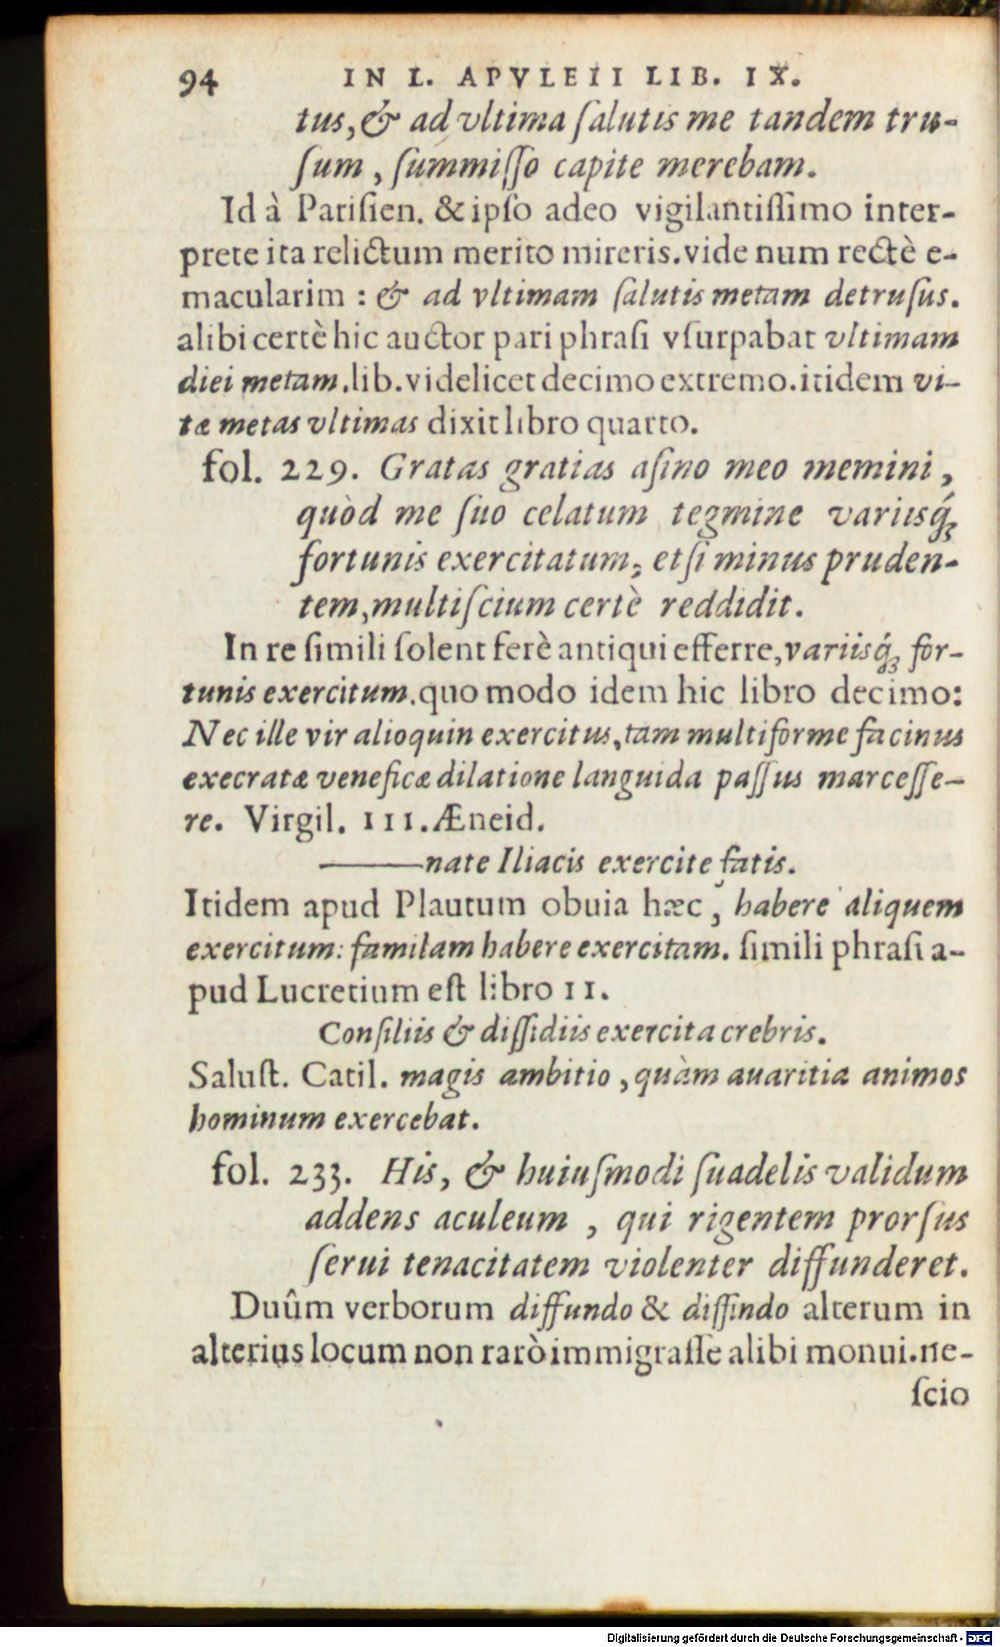 94 IN L. APVLEII LIB. IX.
tus, & ad vltima ſalutis me tandem tru-
ſum, ſummiſſo capite merebam.
Id à Pariſien. & ipſo adeo vigilantiſſimo inter-
prete ita relictum merito mireris. vide num rectè e-
macularim : & ad vltimam ſalutis metam detruſus.
alibi certè hic auctor pari phraſi vſurpabat vltimam
diei metam. lib. videlicet decimo extremo. itidem vi-
tæ metas vltimas dixit libro quarto.
fol. 229. Gratas gratias aſino meo memini,
quòd me ſuo celatum tegmine variisq́ꝫ
fortunis exercitatum, etſi minus pruden-
tem, multiſcium certè reddidit.
In re ſimili ſolent ferè antiqui efferre, variisq́ꝫ for-
tunis exercitum. quo modo idem hic libro decimo:
Nec ille vir alioquin exercitus, tam multiforme facinus
execratæ veneficæ dilatione languida paſſus marceſſe-
re. Virgil. III. Æneid.
———nate Iliacis exercite fatis.
Itidem apud Plautum obuia hæc, habere aliquem
exercitum: familam habere exercitam. ſimili phraſi a-
pud Lucretium eſt libro II.
Conſiliis & diſſidiis exercita crebris.
Saluſt. Catil. magis ambitio, quàm auaritia animos
hominum exercebat.
fol. 233. His, & huiuſmodi ſuadelis validum
addens aculeum, qui rigentem prorſus
ſerui tenacitatem violenter diffunderet.
Duûm verborum diffundo & diffindo alterum in
alterius locum non rarò immigraſſe alibi monui. ne-
ſcio
Digitalisierung gefördert durch die Deutsche Forschungsgemeinschaft - DFG